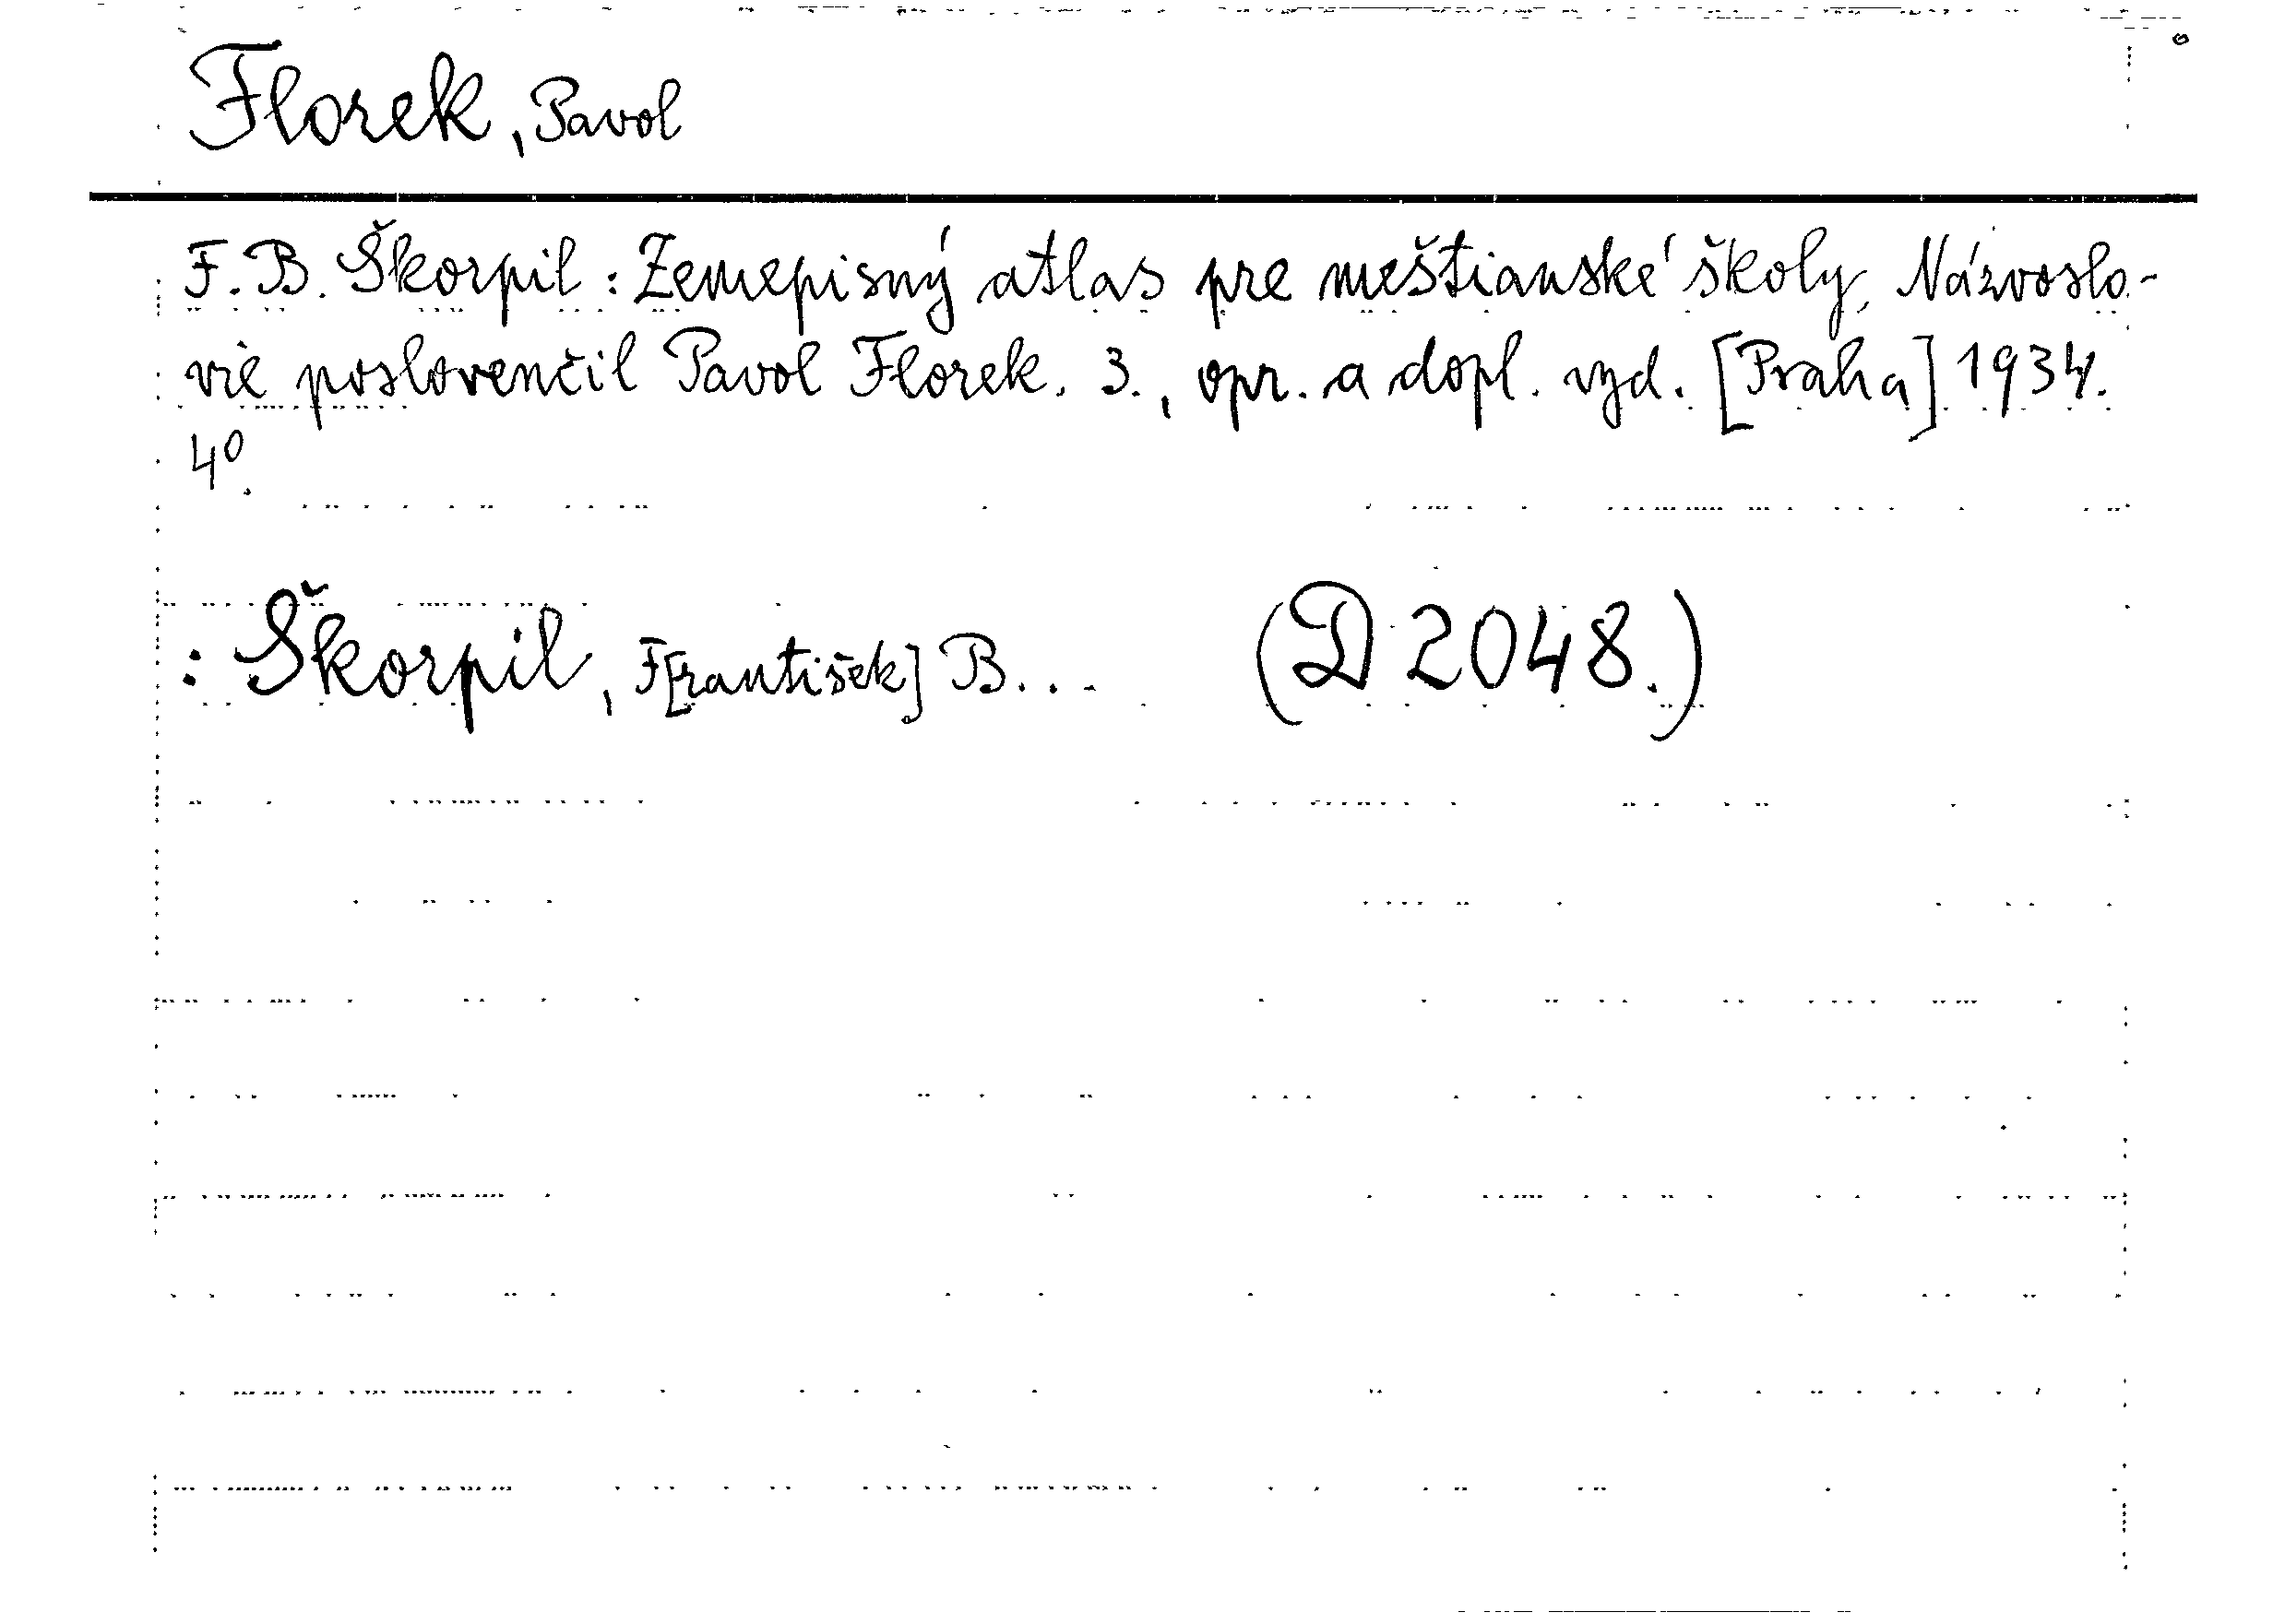 Florek, Pavol
F. B. Škorpil: Zemepisný atlas pre meštianské školy. Názvoslo-
vie poslovenčil Pavol Florek. 3., opr. a dopl. vyd. [Praha] 1934.
4⁰.
: Škorpil, F[rantišek] B... (D 2048.)